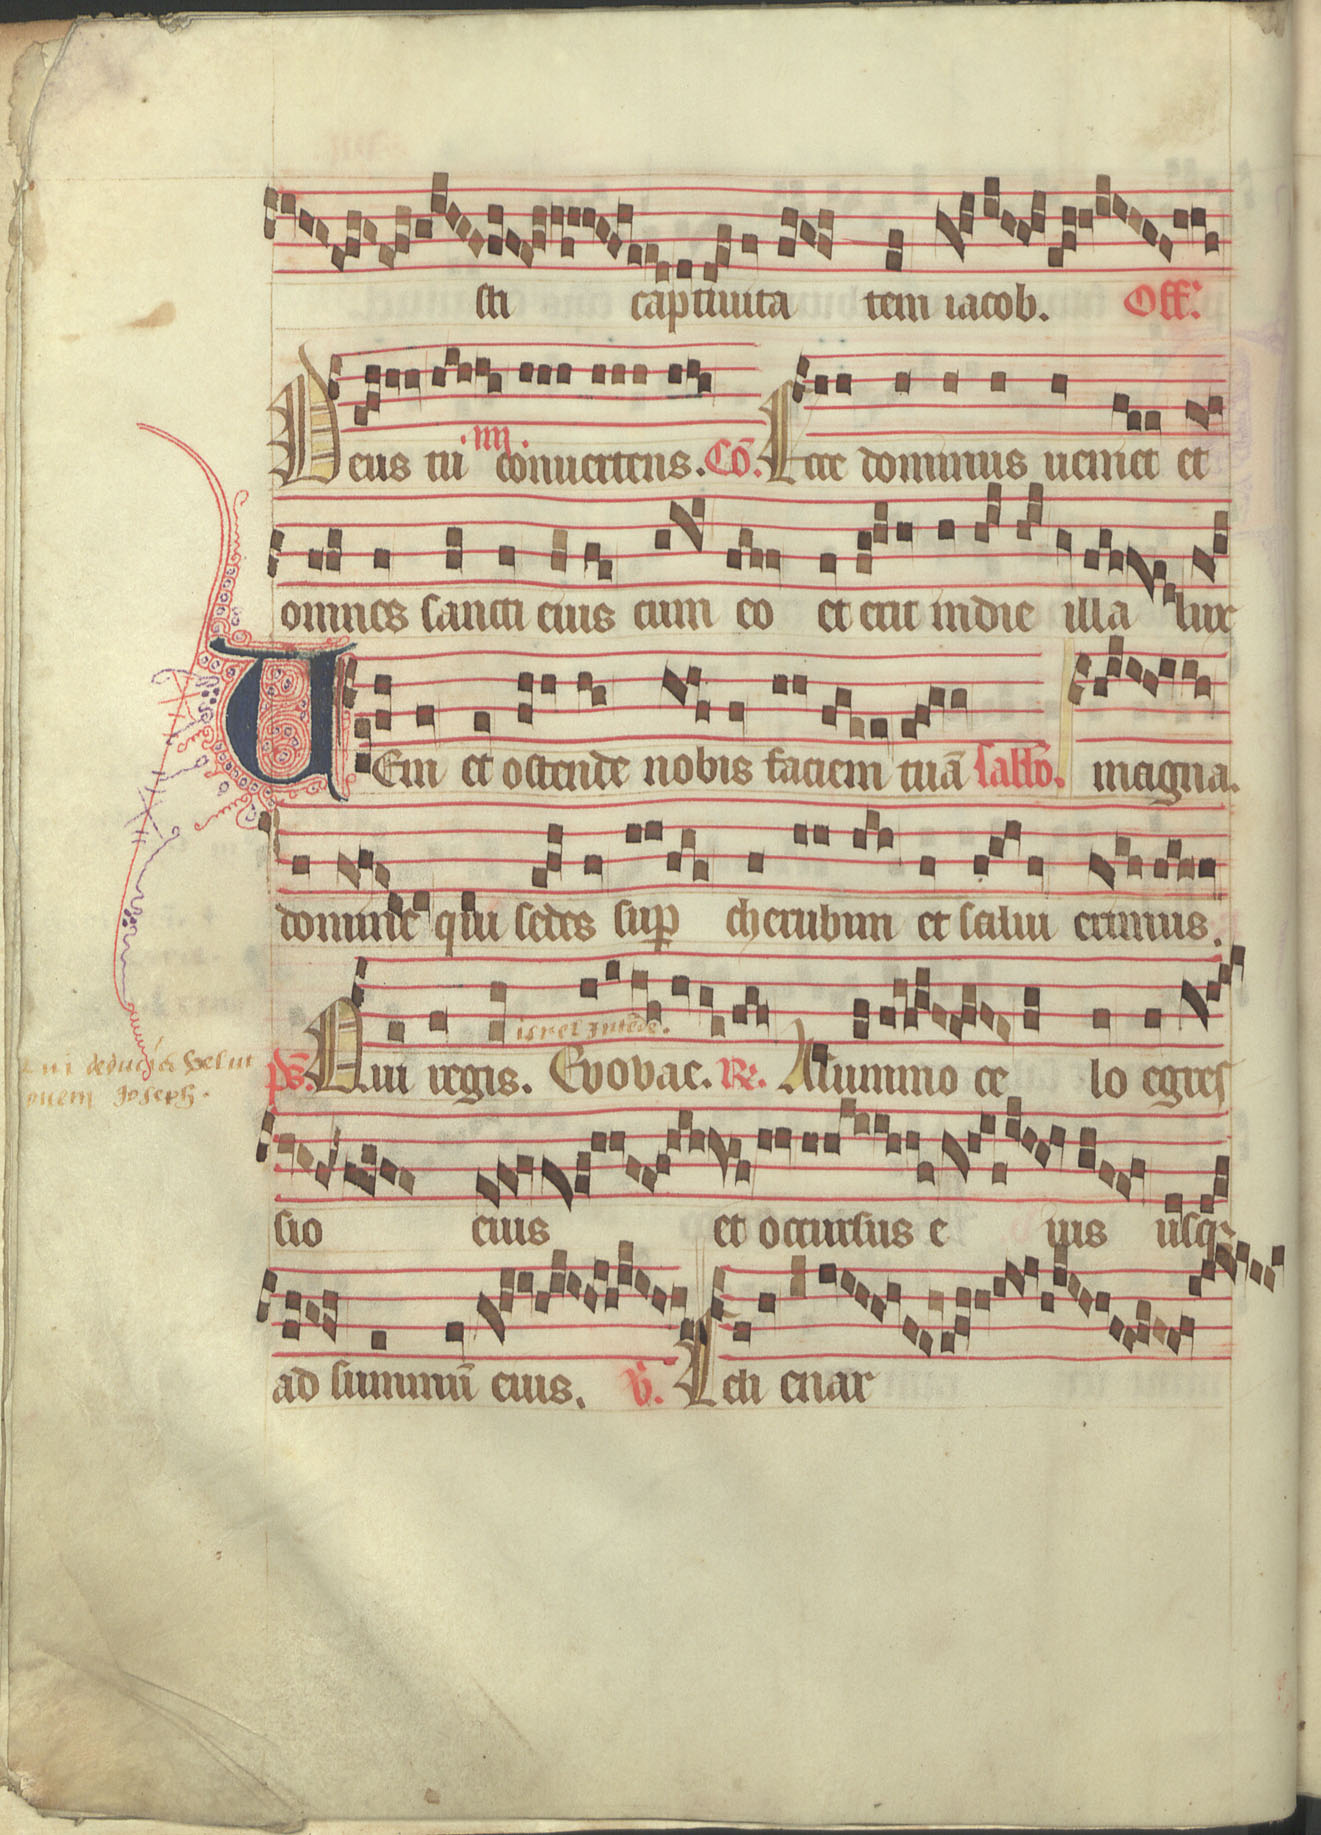 sti captiuita tem iacob. Off.
Deus tu conuertens. Cō. Ecce dominus ueniet et
.iiij.
omnes sancti eius cum eo et erit in die illa lux
UEni et ostende nobis faciem tuā sabbō. magna.
domine qui sedes sup cherubim et salui erimus.
isrel Intēde.
ps. Qui regis. Evovae. R. A summo ce lo egres
Qui deducis velut
ouem Joseph.
sio eius et occursus e ius usq
ad summū eius. V. Celi enar